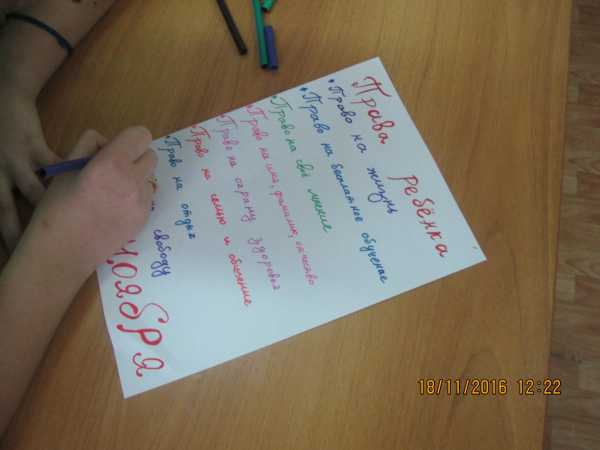 Права ребёнка
• Право на жизнь
• Право на бесплатное обучение
• Право на своё мнение
• Право на имя, фамилию, отчество
• Право на охрану здоровья
• Право на семью и общение
• Право на отдых
свободу
ноября
18/11/2016 12:22